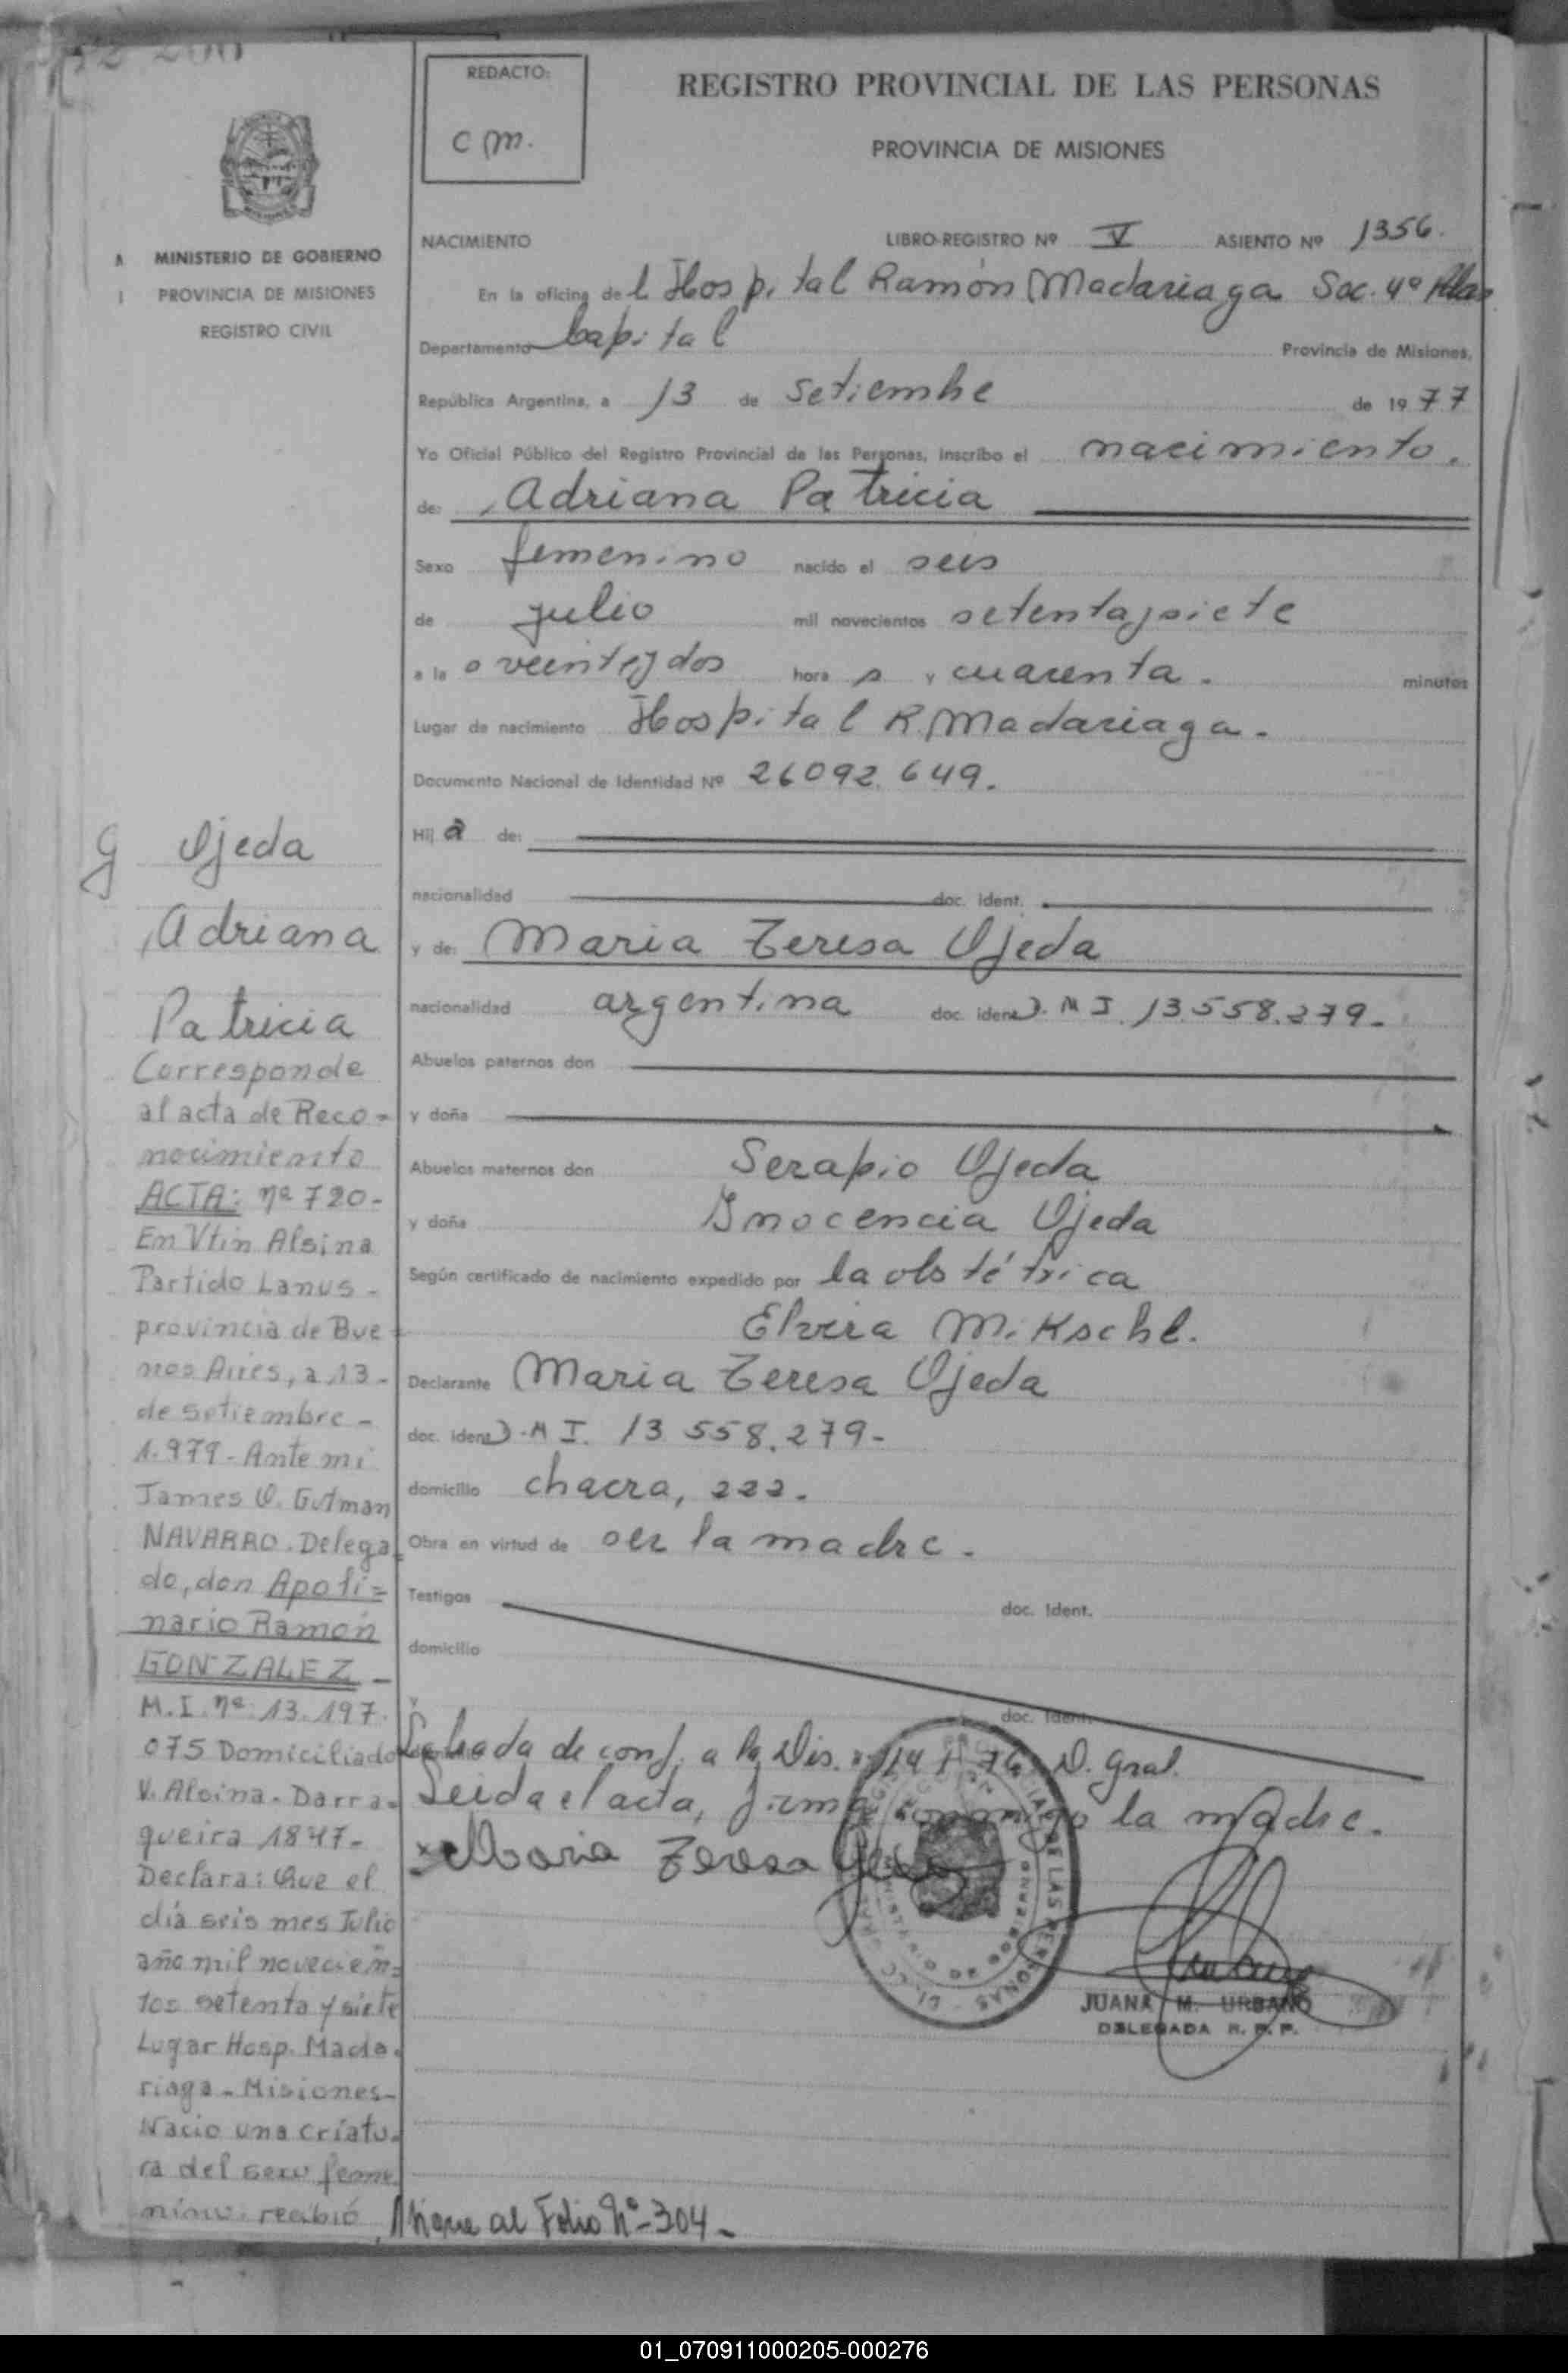 REDACTO:
C M.
REGISTRO PROVINCIAL DE LAS PERSONAS
PROVINCIA DE MISIONES
MINISTERIO DE GOBIERNO
PROVINCIA DE MISIONES
REGISTRO CIVIL
NACIMIENTO LIBRO-REGISTRO Nº V ASIENTO Nº 1356.
En la oficina del Hospital Ramón Madariaga Sec. 4ª
Departamento Capital Provincia de Misiones,
República Argentina, a 13 de Setiembre de 1977
Yo Oficial Público del Registro Provincial de las Personas, inscribo el nacimiento.
de: Adriana Patricia
Sexo femenino nacido el seis
de julio mil novecientos setentaysiete
a la s veintiydos hora s y cuarenta. minutos
Lugar de nacimiento Hospital R. Madariaga.
Documento Nacional de Identidad Nº 26092.649.
Hij a de:
nacionalidad doc. ident.
y de: Maria Teresa Ojeda
nacionalidad argentina doc. ident D.N I. 13.558.279.-
Abuelos paternos don
y doña
Abuelos maternos don Serapio Ojeda
y doña Inocencia Ojeda
Según certificado de nacimiento expedido por la obstétrica
Elvira Mikschl.
Declarante Maria Teresa Ojeda
doc. ident D.N I. 13.558.279-
domicilio chacra, 222.
Obra en virtud de ser la madre.
Testigos doc. Ident.
domicilio
y doc. Ident.
Labrada de conf. a la Dis. 114 1 76 D. Gral.
Leida el acta, firma conmigo la madre.
Maria Teresa Ojeda
JUANA M. URBANO
DELEGADA R. P. P.
G Ojeda
Adriana
Patricia
Corresponde
al acta de Reco-
nocimiento
ACTA: nº 720-
En Vtin Alsina
Partido Lanus-
provincia de Bue
nos Aires, a 13-
de setiembre-
1.979-Ante mi
James O. Gutman
NAVARRO. Delega
do, don Apoli=
nario Ramón
GONZALEZ-
M.I. nº 13.197.
075 Domiciliado
V. Alsina-Darra-
gueira 1847-
Declara: Que el
día seis mes Julio
año mil novecien-
tos setenta y siete
Lugar Hosp. Mada-
riaga-Misiones-
Nacio una criatu-
ra del sexo feme
nino: recibió
Sigue al Folio Nº-304-
01_070911000205-000276